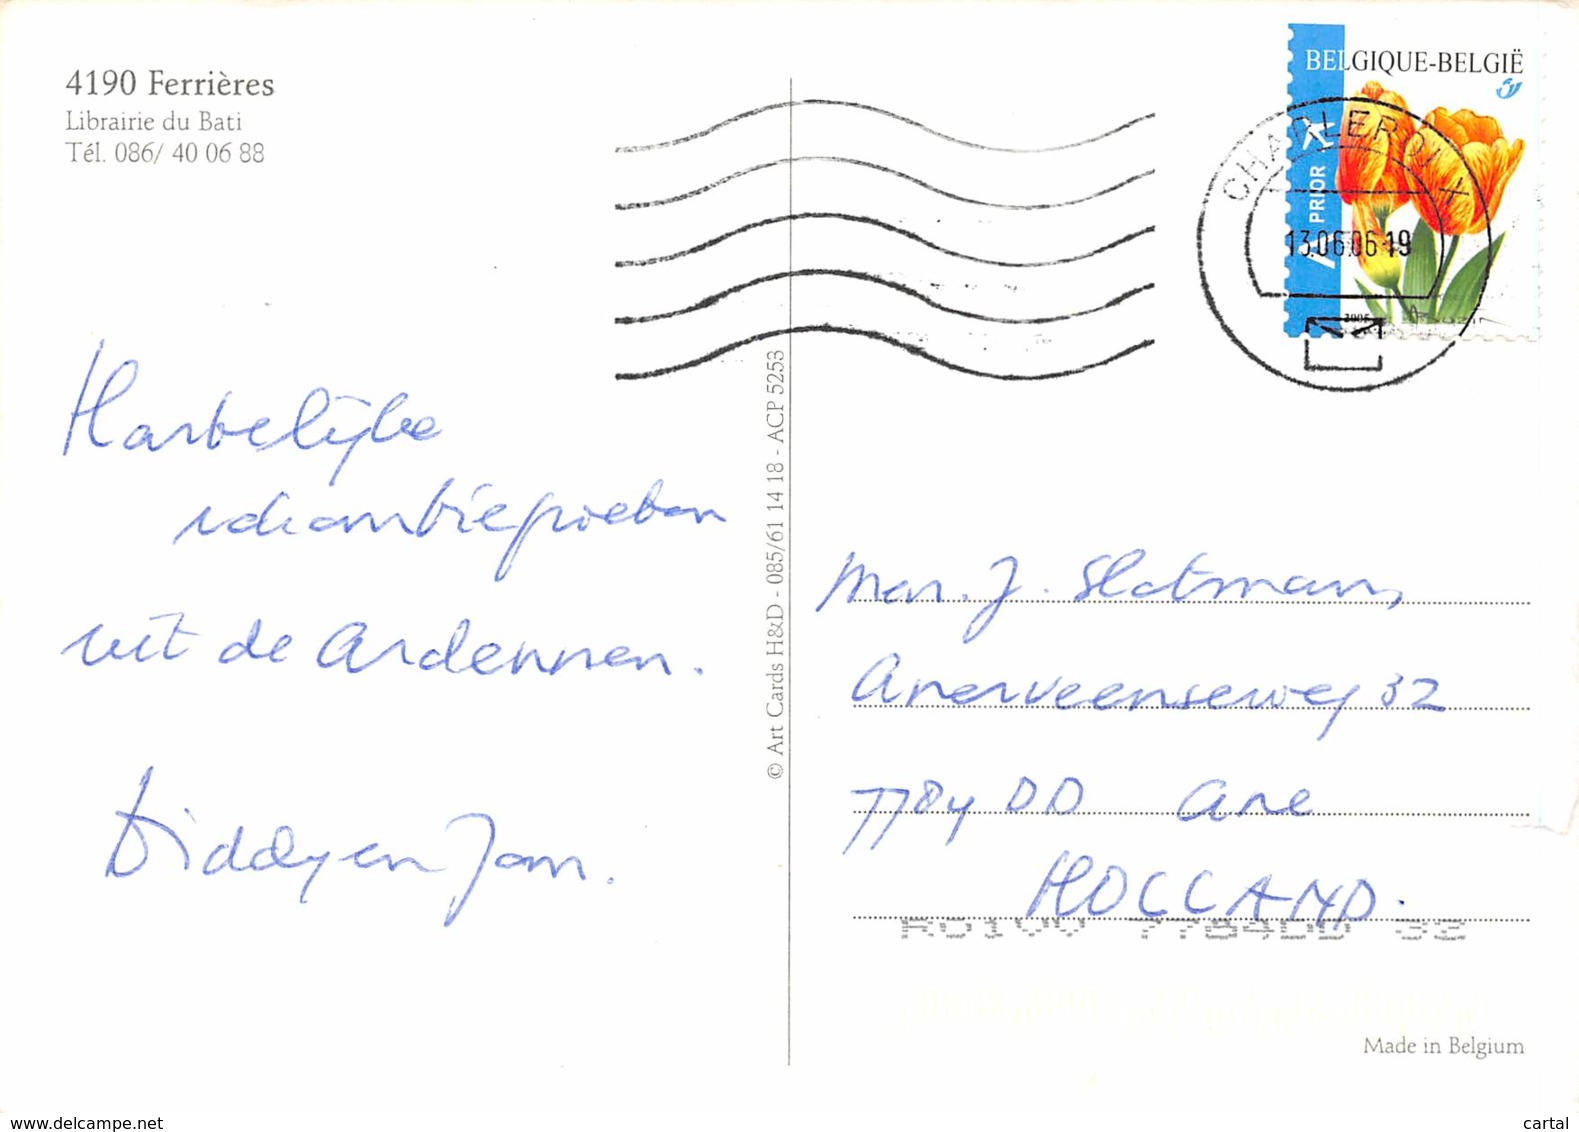 4190 Ferrières
Librairie du Bati
Tél. 086/ 40 06 88
BELGIQUE-BELGIË
A PRIOR
CHARLEROI X
13.06.06-19
Hartelijke
vakantiegroeten
uit de Ardennen.
Diddy en Jan.
© Art Cards H&D - 085/61 14 18 - ACP 5253
Men. J. Slotman,
Anerveenseweg 32
7784 DD Ane
HOLLAND.
7784DD 32
Made in Belgium
www.delcampe.net
cartal